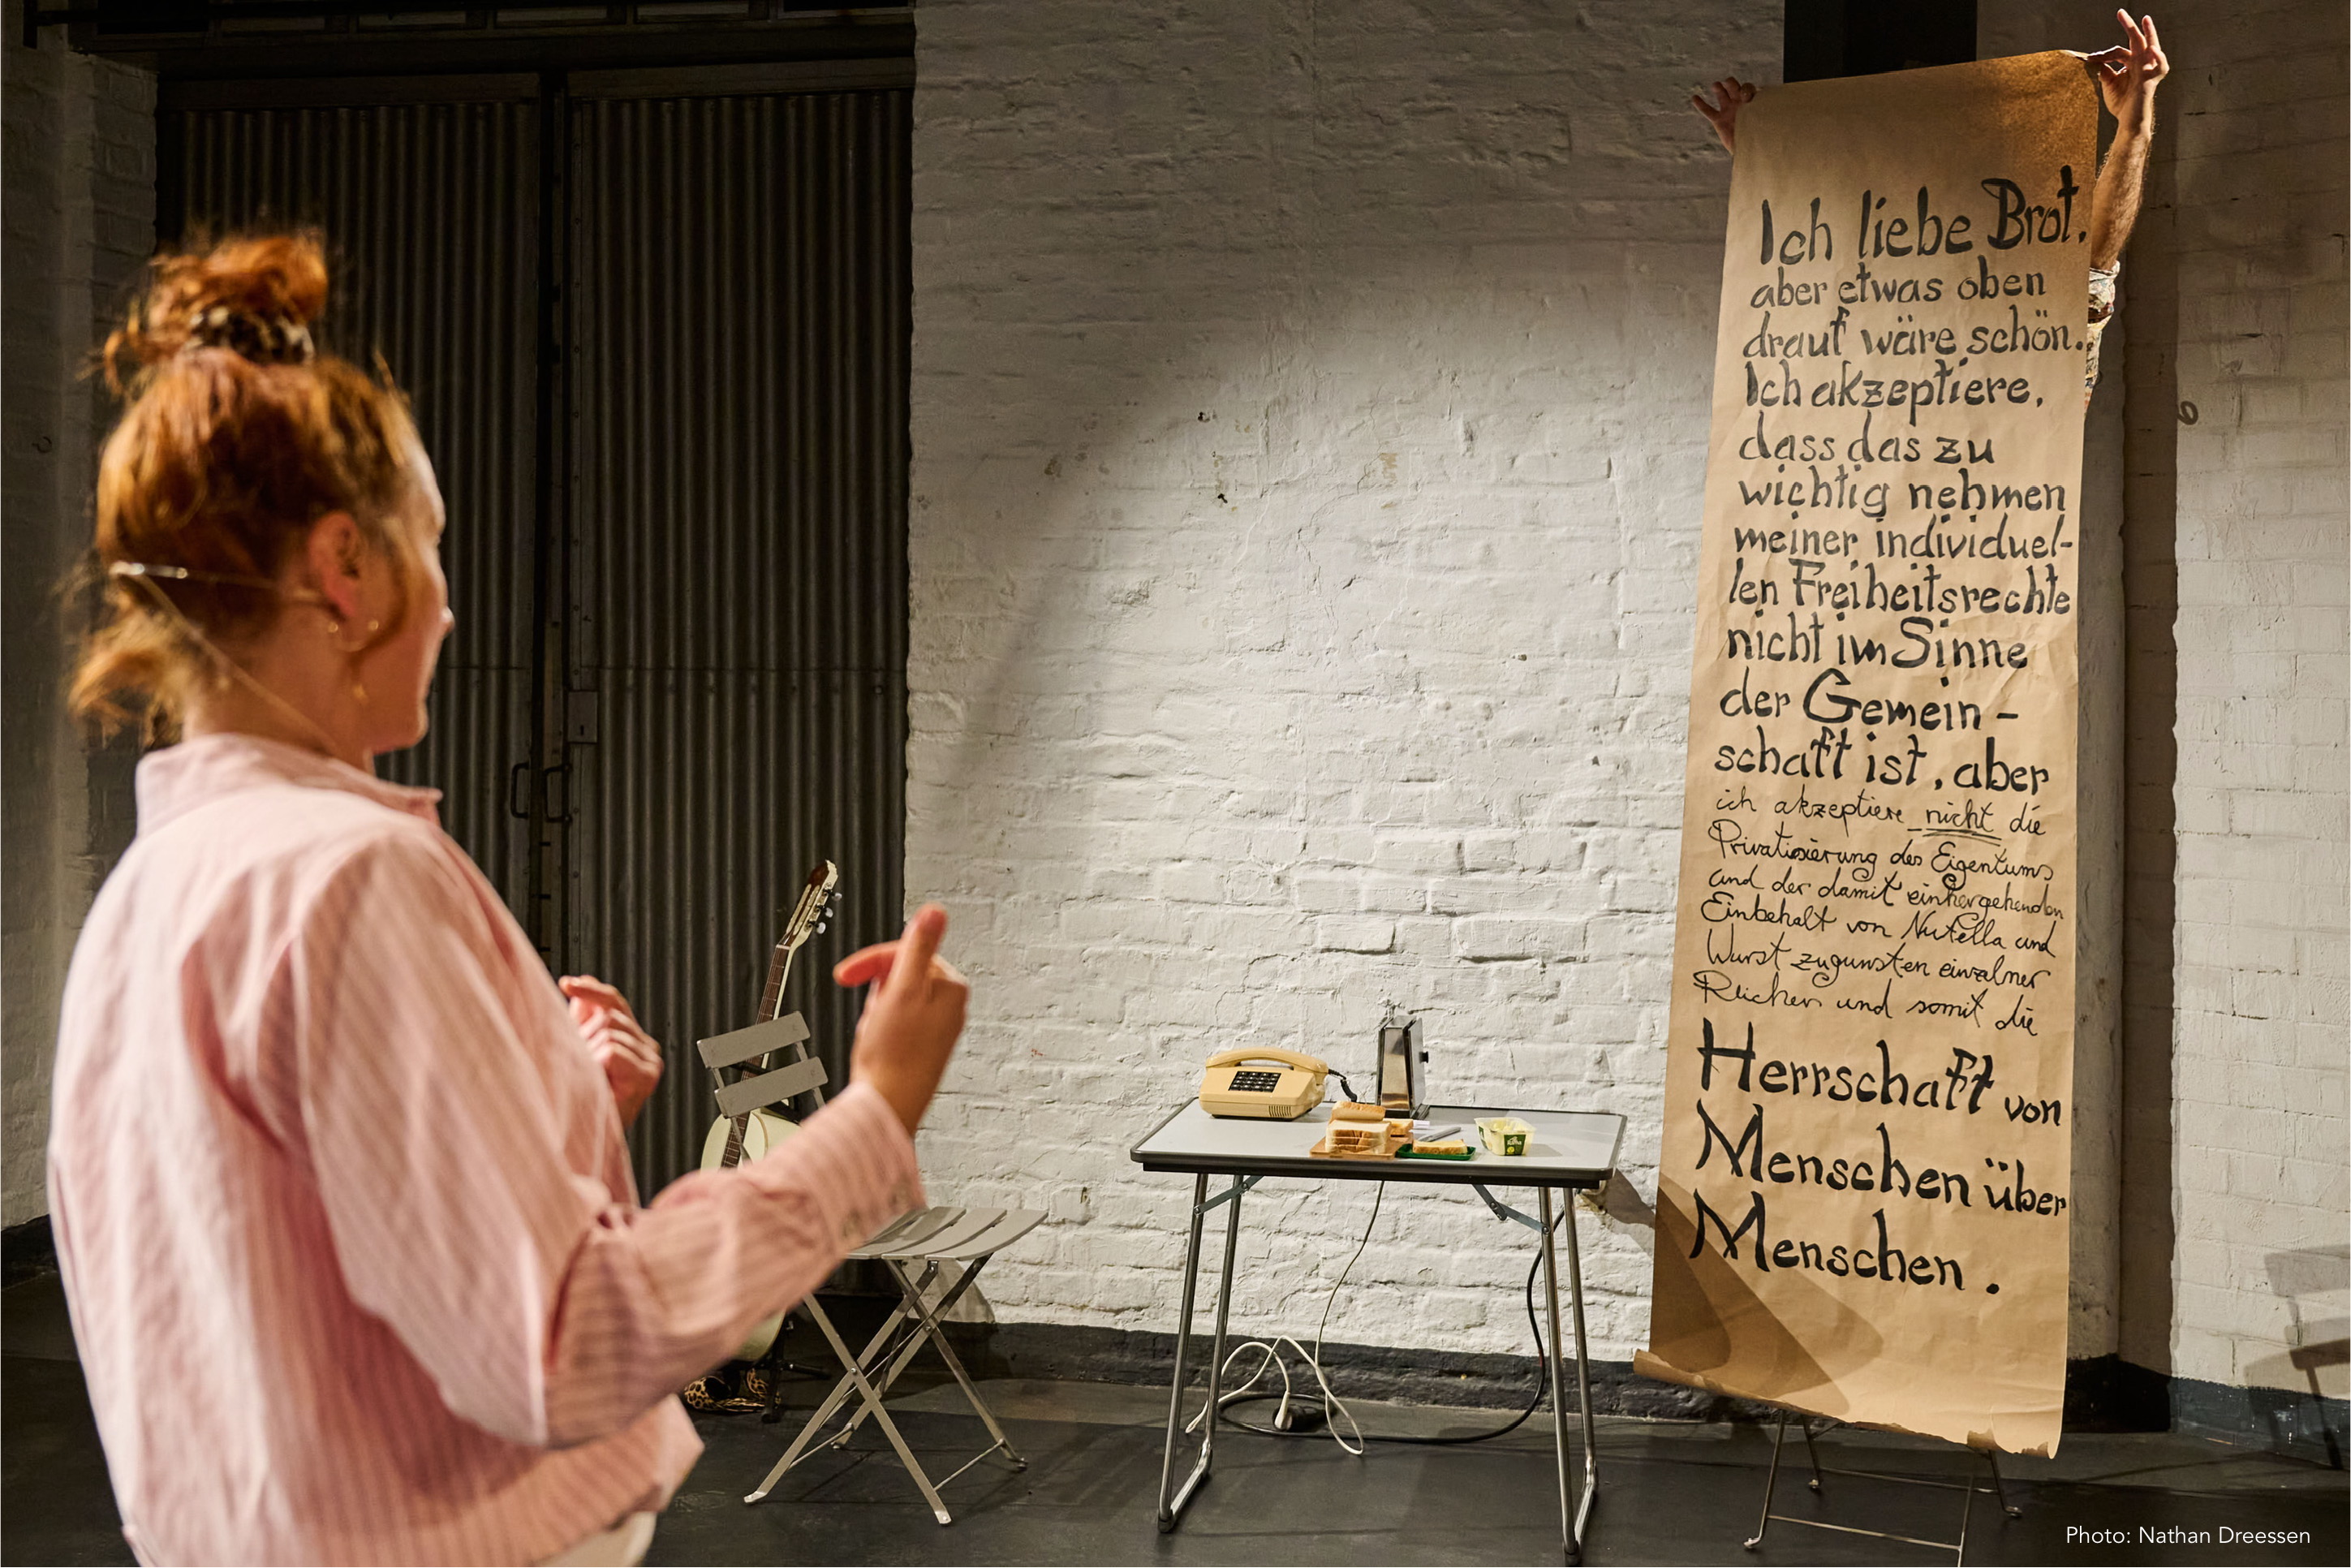 Ich liebe Brot.
aber etwas oben
drauf wäre schön.
Ich akzeptiere,
dass das zu
wichtig nehmen
meiner individuel-
len Freiheitsrechte
nicht im Sinne
der Gemein-
schaft ist, aber
ich akzeptiere nicht die
Privatisierung des Eigentums
und der damit einhergehenden
Einbehalt von Nutella und
Wurst zugunsten einzelner
Reicher und somit die
Herrschaft von
Menschen über
Menschen.
Photo: Nathan Dreessen